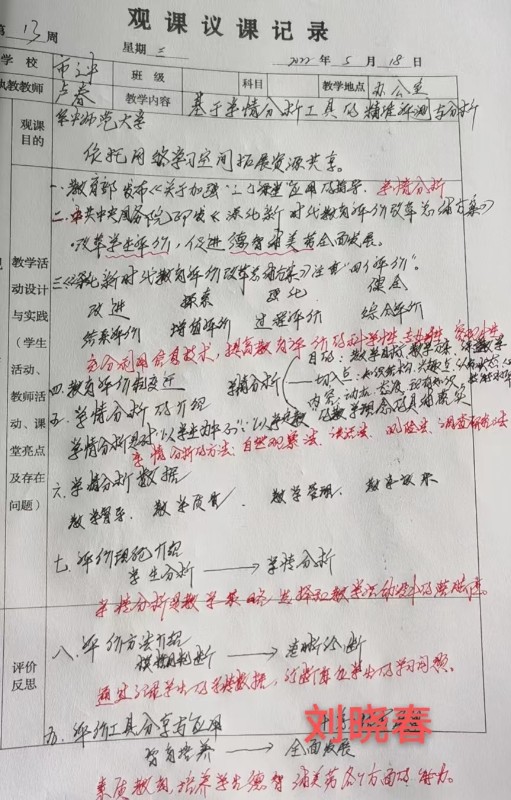 观课议课记录
第13周 星期三 2022年5月18日
学校 班级 科目 教学地点 办公室
执教教师 卢春 教学内容 基于学情分析工具的精准评测与分析
观课目的
华中师范大学
依托网络学习空间拓展资源共享。
教学活动设计与实践(学生活动、教师活动、课堂亮点及存在问题)
一、教育部发布《关于加强"三个课堂"应用的指导 学情分析
二、中共中央国务院印发《深化新时代教育评价改革总体方案》
改革学生评价,促进德智体美劳全面发展。
三、《深化新时代教育评价改革总体方案》注意"四个评价"。
改进 探索 强化 健全
结果评价 增值评价 过程评价 综合评价
充分利用信息技术,提高教育评价的科学性、专业性、客观性
四、教育评价 学情分析
目的:
切入点:
内容:
五、学情分析的介绍
学情分析是对"以学生为中心"
学情分析的方法:自然观察法、谈话法、 调查研究法
六、学情分析数据
教学督导、教学质量 教学管理、教学
七、评价现况介绍
学生分析 → 学情分析
学情分析是教学策略选择和教学活动设计的落脚点。
评价反思
八、评价方法介绍
模糊判断 → 诊断
通过 学生的 数据, 学生的学习问题。
五、评价工具分享与应用
智育培养 → 全面发展
素质教育,培养学生德智体美劳各个方面的能力。
刘晓春